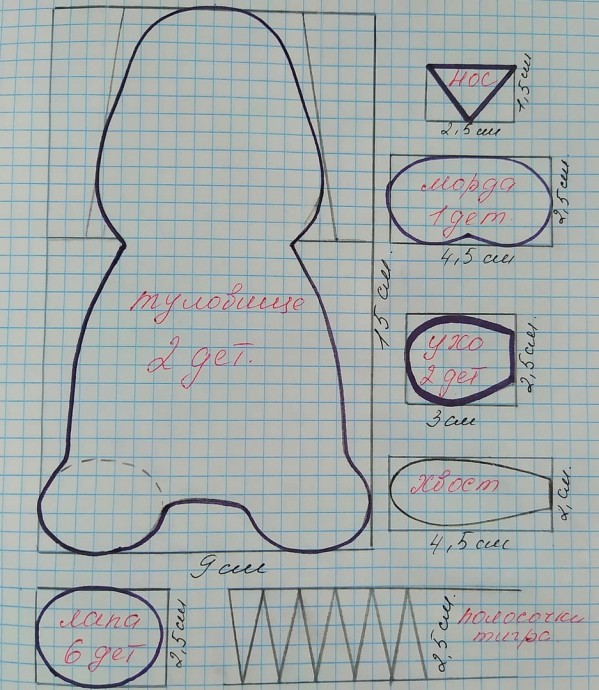 нос
1,5 см
2,5 см
морда
1 дет
2,5 см.
4,5 см
туловище
2 дет.
15 см.
ухо
2 дет
2,5 см.
3 см
хвост
2 см.
4,5 см
9 см
лапа
6 дет
2,5 см
2,5 см.
полосочки
тигра